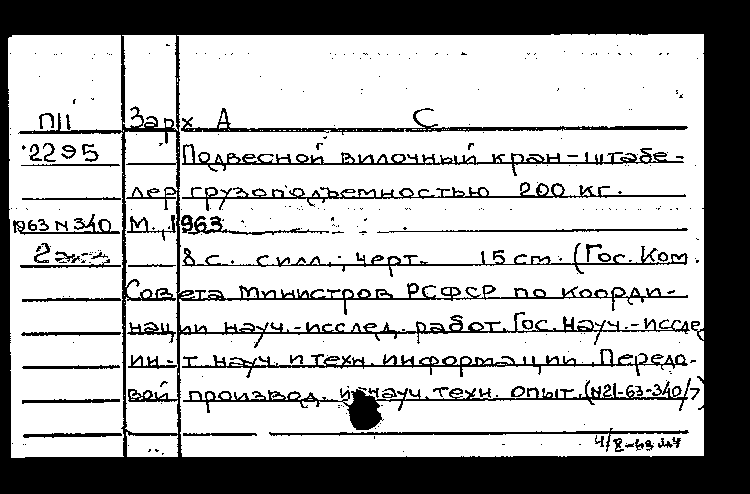 П/I Зарх А С
2295 Подвесной вилочный кран-штабе-
лер грузоподъемностью 200 кг.
1963 N 340 М., 1963
2 экз 8 с. с илл.; черт. 15 см. (Гос. Ком.
Совета Министров РСФСР по коорди-
нации науч.-исслед. работ. Гос. Науч.-иссле
ин-т науч. и техн. информации. Передо-
вой производ. и науч. техн. опыт. (N21-63-340/7)